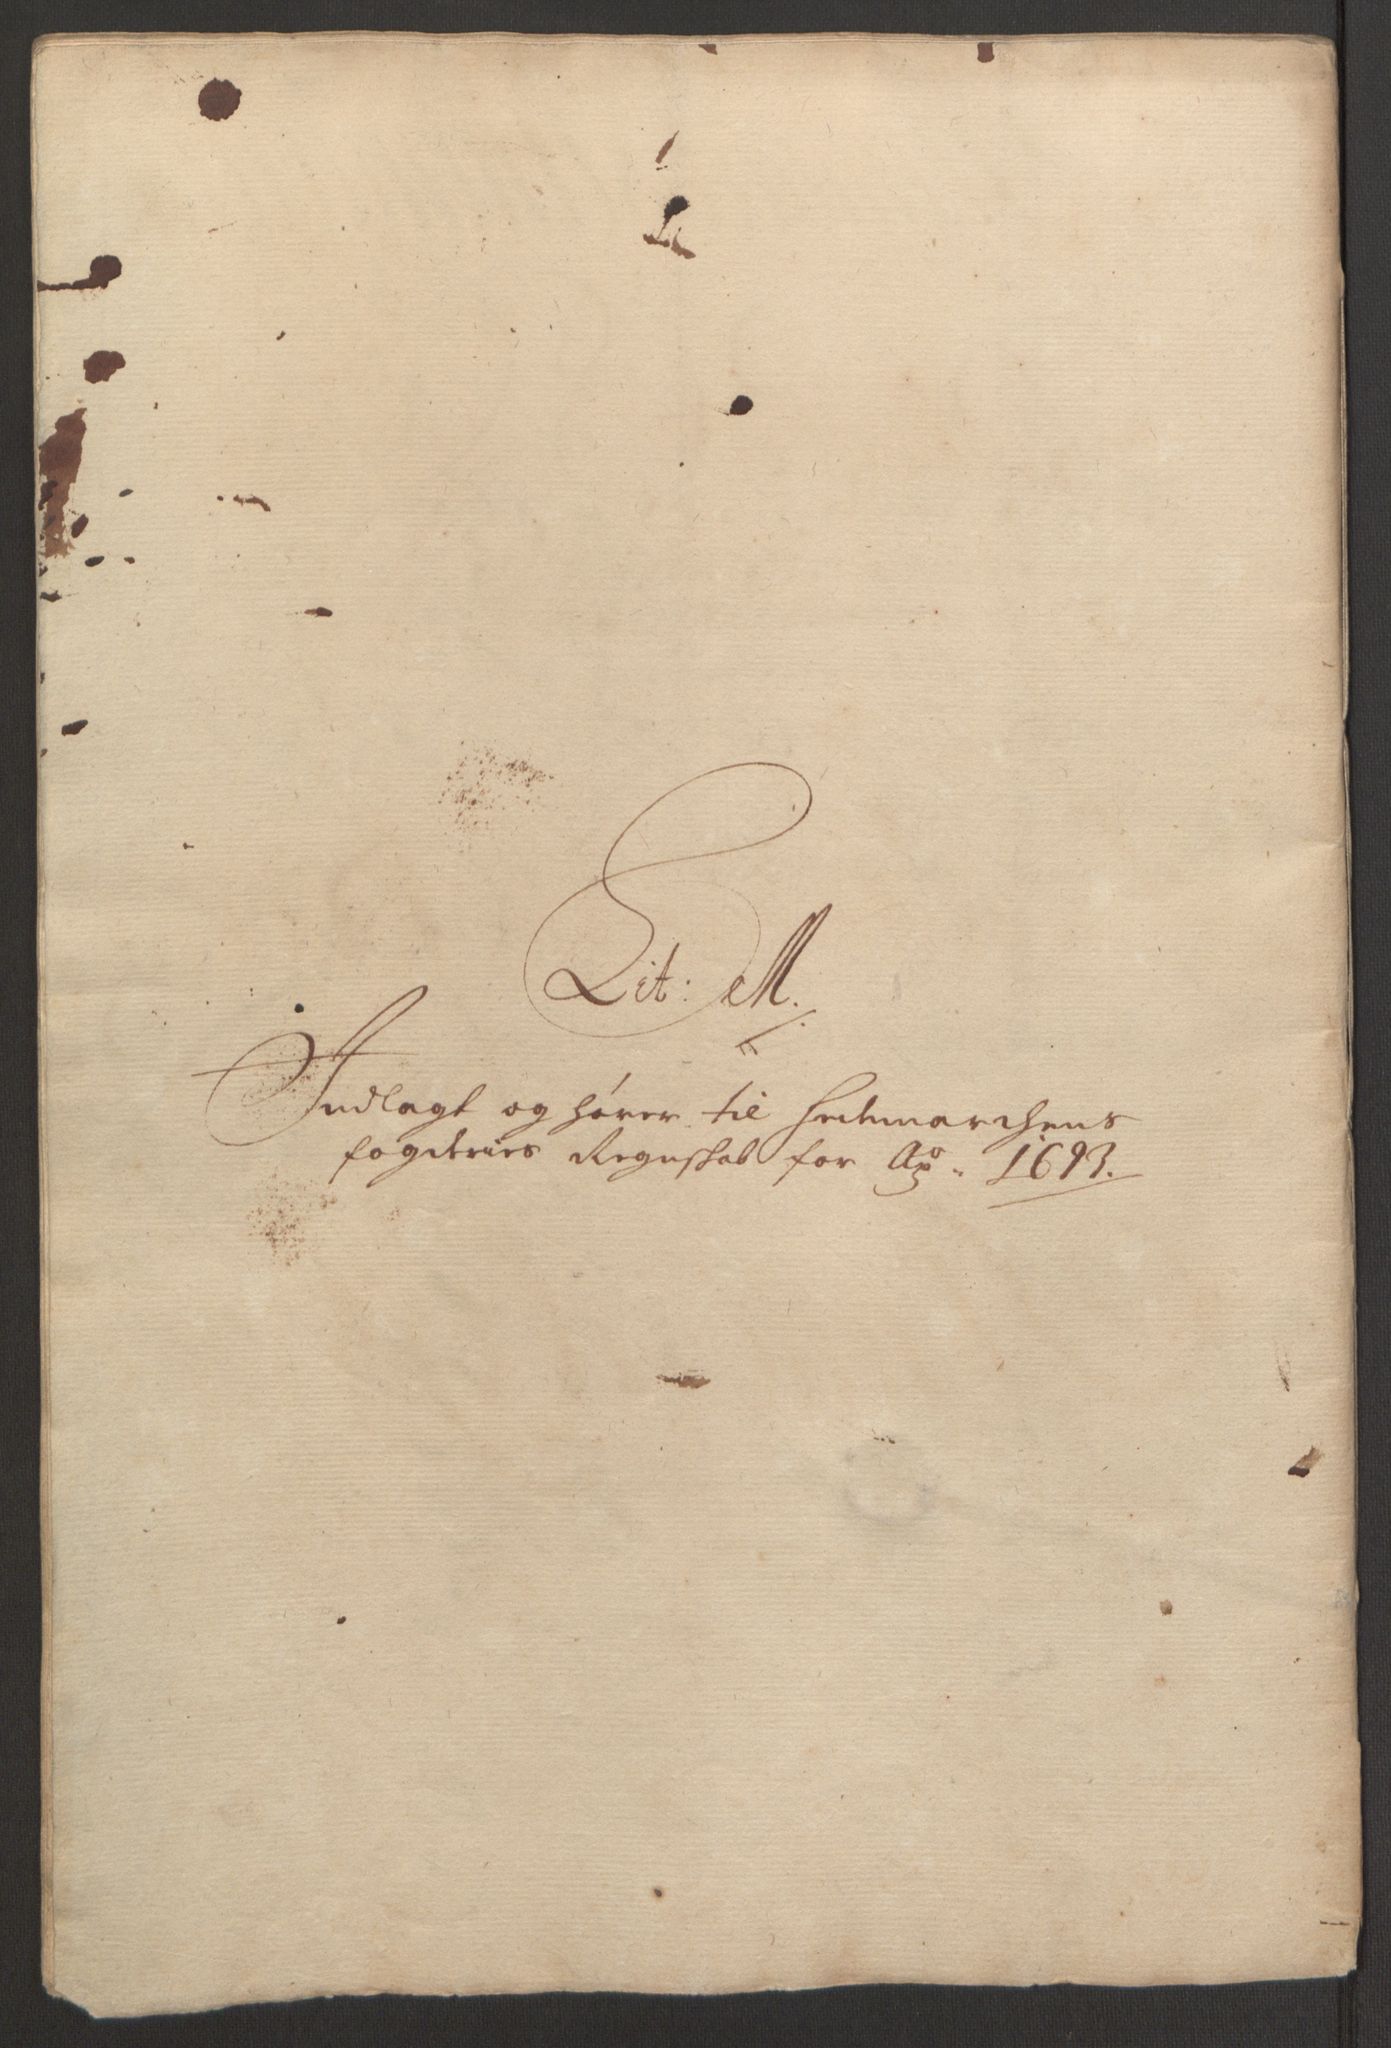 Lit: M.
Indlagt og hører til Hedemarchens
fogderies Regnskab for Ao. 1693.